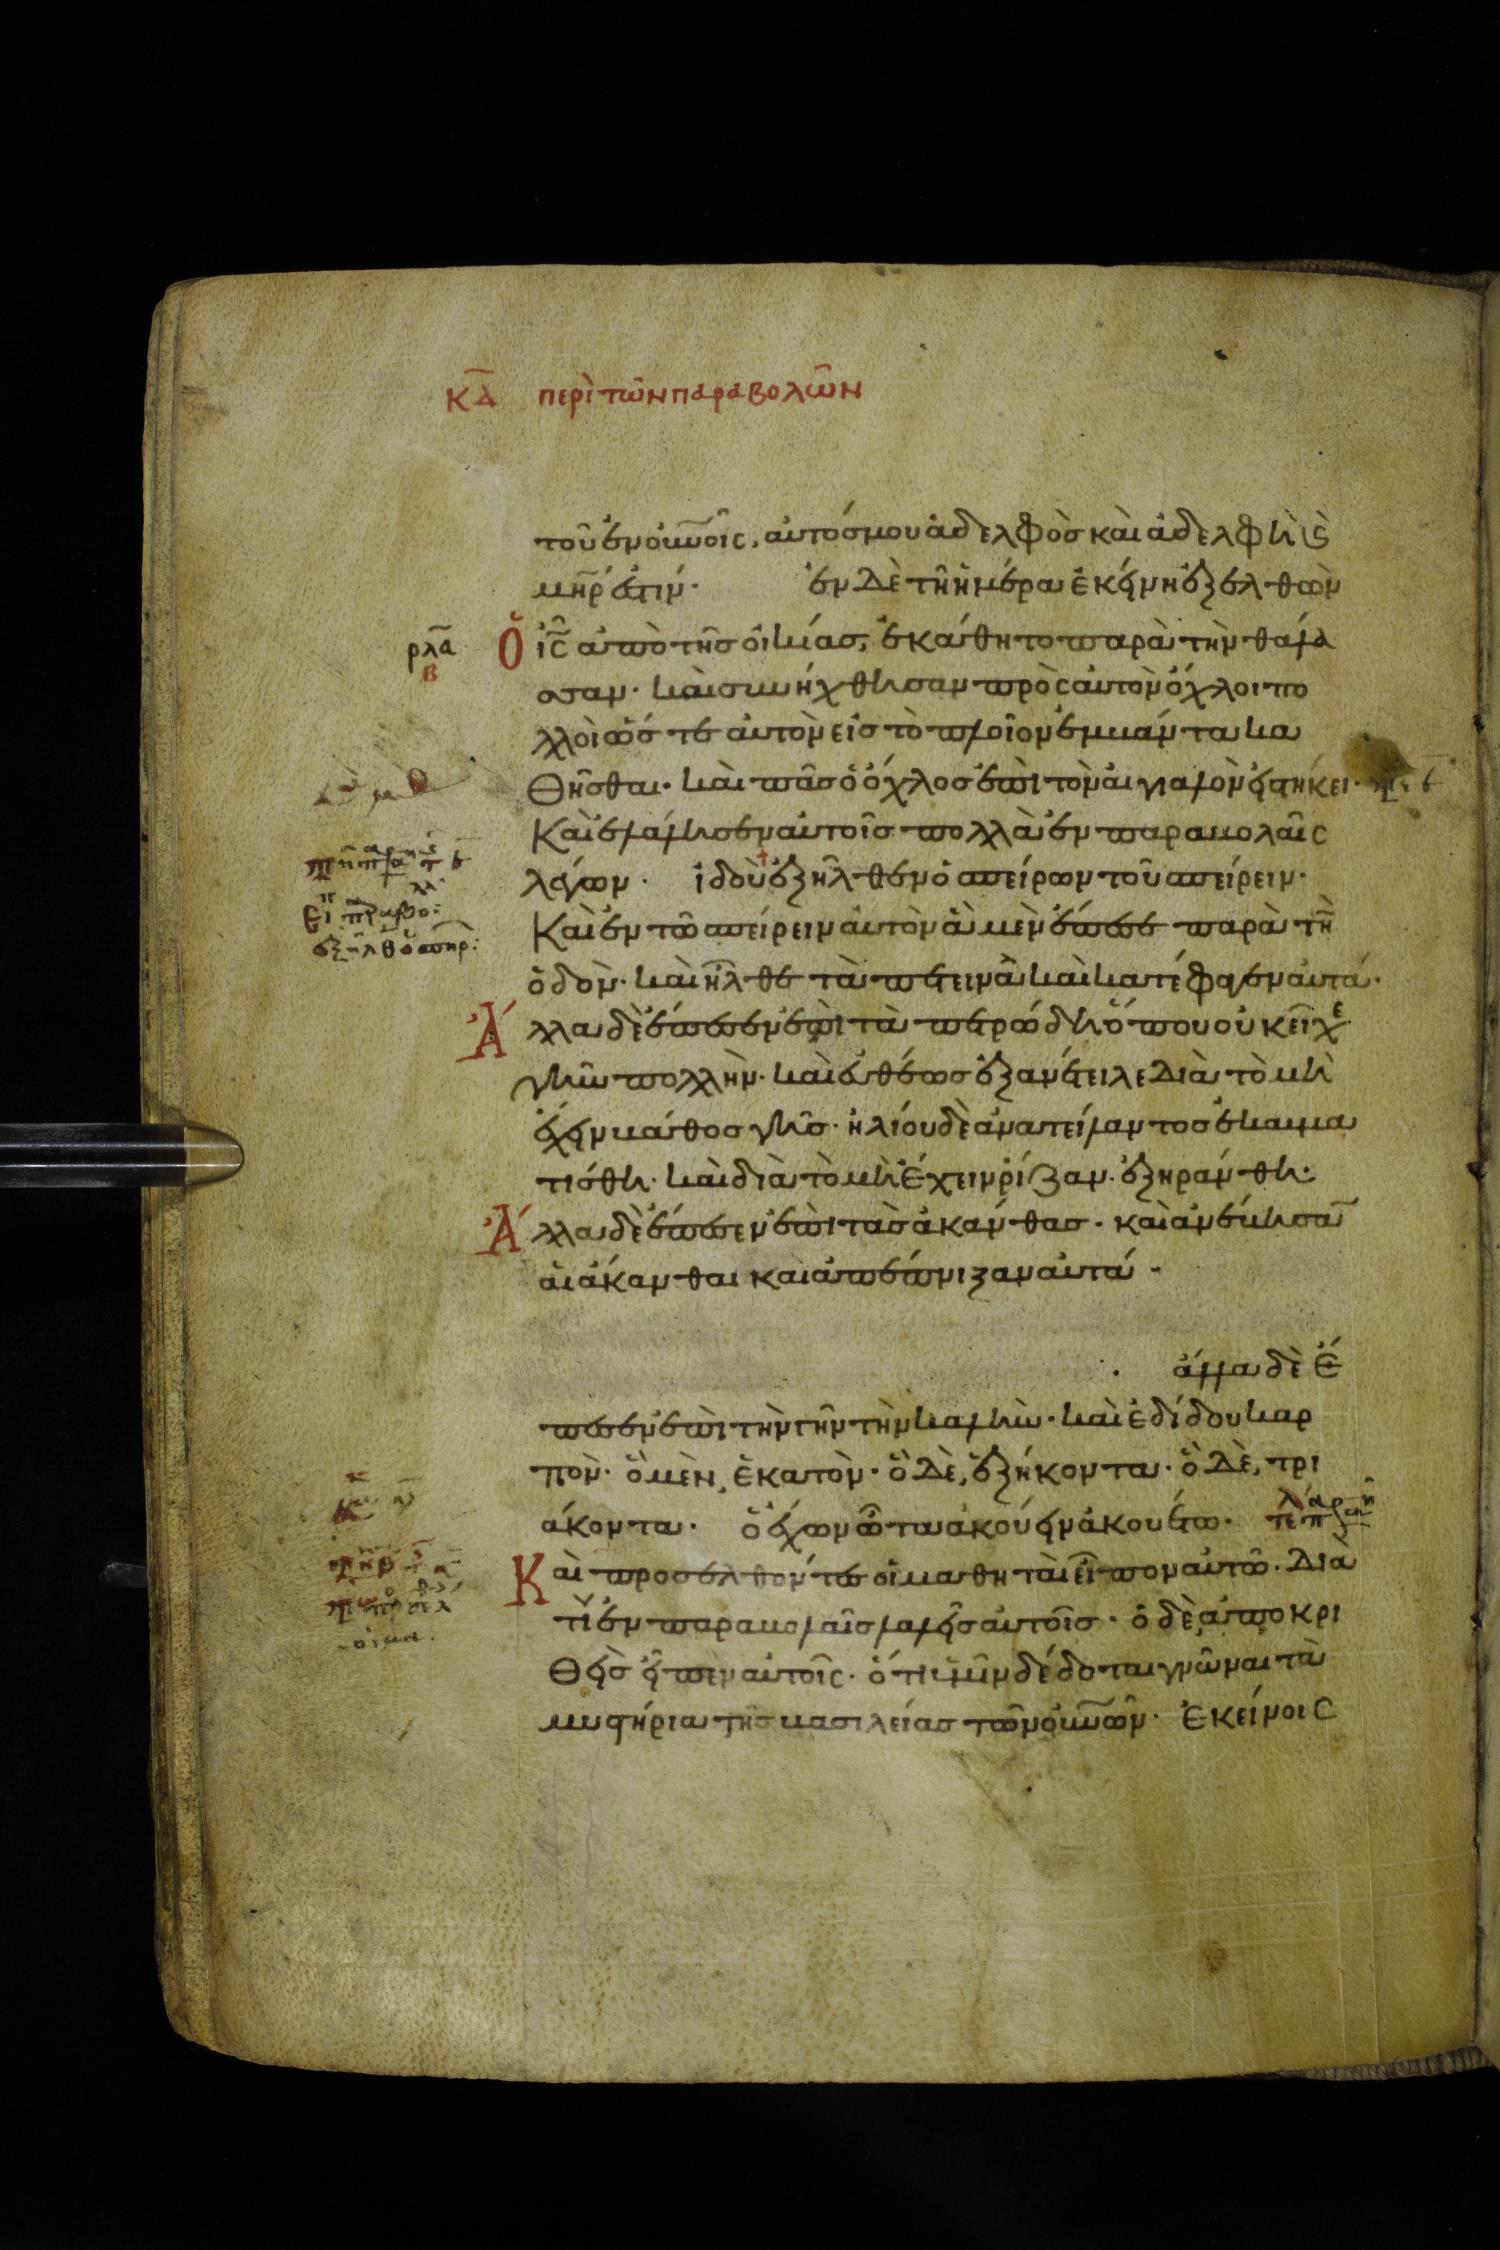 κδ περὶ τῶν παραβολῶν
τοῦ ἐν οὐνοῖς, αὐτόσ μου ἀδελφὸσ καὶ ἀδελφὴ ϗ
μηρ ἐστίν· ἐν δὲ τῆ ἡμέρα ἐκείνη ἐξελθὼν
ρλα
β
Ὁ ις ἀπὸ τῆσ οἰκίασ, ἐκάθητο παρὰ τὴν θαλα
σσαν· καὶ συνήχθησαν πρὸς αὐτὸν ὄχλοι πο
λλοὶ ὥστε αὐτὸν εἰσ τὸ πλοῖον ἐμβάντα κα
θῆσθαι· καὶ πᾶσ ὁ ὄχλοσ ἐπὶ τὸν αἰγιαλὸν εἱστήκει·
Καὶ ἐλάλησεν αὐτοῖσ πολλὰ ἐν παραβολαῖς
λέγων· ἰδοὺ ἐξῆλθεν ὁ σπείρων τοῦ σπείρειν·
Καὶ ἐν τῶ σπείρειν αὐτὸν ἃ μὲν ἔπεσε παρὰ τὴν
ὁδὸν· καὶ ἦλθε τὰ πετεινὰ καὶ κατέφαγεν αὐτά·
ἐξῆλθ ὁ σπηρ:
Ἄλλα δὲ ἔπεσεν ἐπὶ τὰ πετρώδη ὅπου οὐκ εἶχε
γῆν πολλὴν· καὶ εὐθέωσ ἐξανέτειλε διὰ τὸ μὴ
ἔχειν βάθοσ γῆσ· ἡλίου δὲ ἀνατείλαντοσ ἐκαυμα
τίσθη· καὶ διὰ τὸ μὴ ἔχειν ῥίζαν· ἐξηράνθη·
Ἄλλα δὲ ἔπεσεν ἐπὶ τὰσ ἀκάνθασ· καὶ ἀνέβησα
αἱ ἄκανθαι καὶ ἀπέπνιξαν αὐτά·
ἄλλα δὲ ἔ
πεσεν ἐπὶ τὴν γῆν τὴν καλὴν· καὶ ἐδίδου καρ
πὸν· ὃ μὲν, ἑκατὸν· ὃ δὲ, ἑξήκοντα· ὃ δὲ, τρι
άκοντα· ὁ ἔχων ὦτα ἀκούειν ἀκουέτω·
Καὶ προσελθόντεσ οἱ μαθηταὶ εἶπον αὐτῶ· διὰ
τί ἐν παραβολαῖσ λαλεῖσ αὐτοῖσ· ὁ δὲ, ἀποκρι
θεὶσ εἶπεν αὐτοῖς· ὅτι ὑμῖν δέδοται γνῶναι τὰ
μυστήρια τῆσ βασιλείασ τῶν οὐνῶν· ἐκείνοις